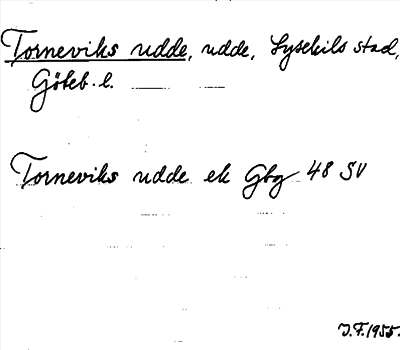 Torneviks udde, udde, Lysekils stad,
Göteb. l.
Torneviks udde ek Gbg 48 SV
J.F. 1955.